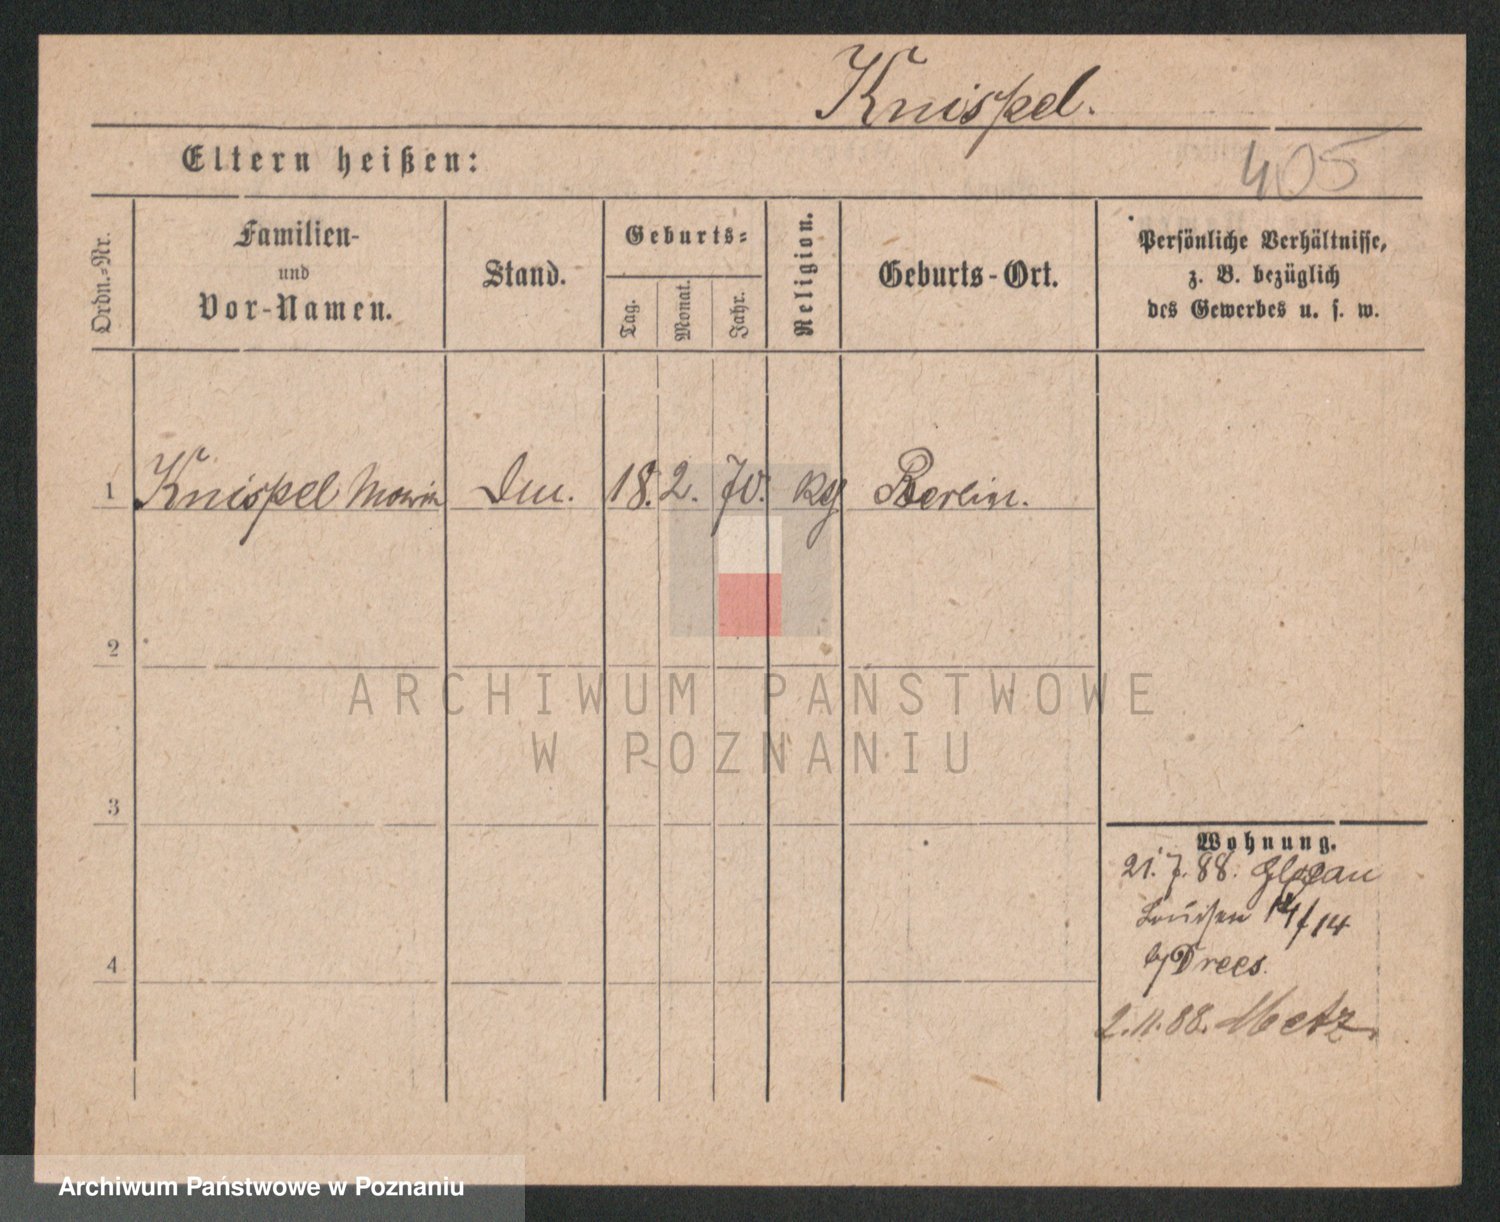 Knispel.
Eltern heißen:
405
Ordn.-Nr.
Familien-
und
Vor-Namen.
Stand.
Geburts-
Tag.
Monat.
Jahr.
Religion.
Geburts-Ort.
Persönliche Verhältnisse,
z. B. bezüglich
des Gewerbes u. s. w.
1 Knispel 18. 2. 70. Berlin.
2
3
4
Wohnung.
21.7.88. Glogau
Louisen 14/14
b/Drees.
2.11.88. Metz.
ARCHIWUM PAŃSTWOWE
W POZNANIU
Archiwum Państwowe w Poznaniu